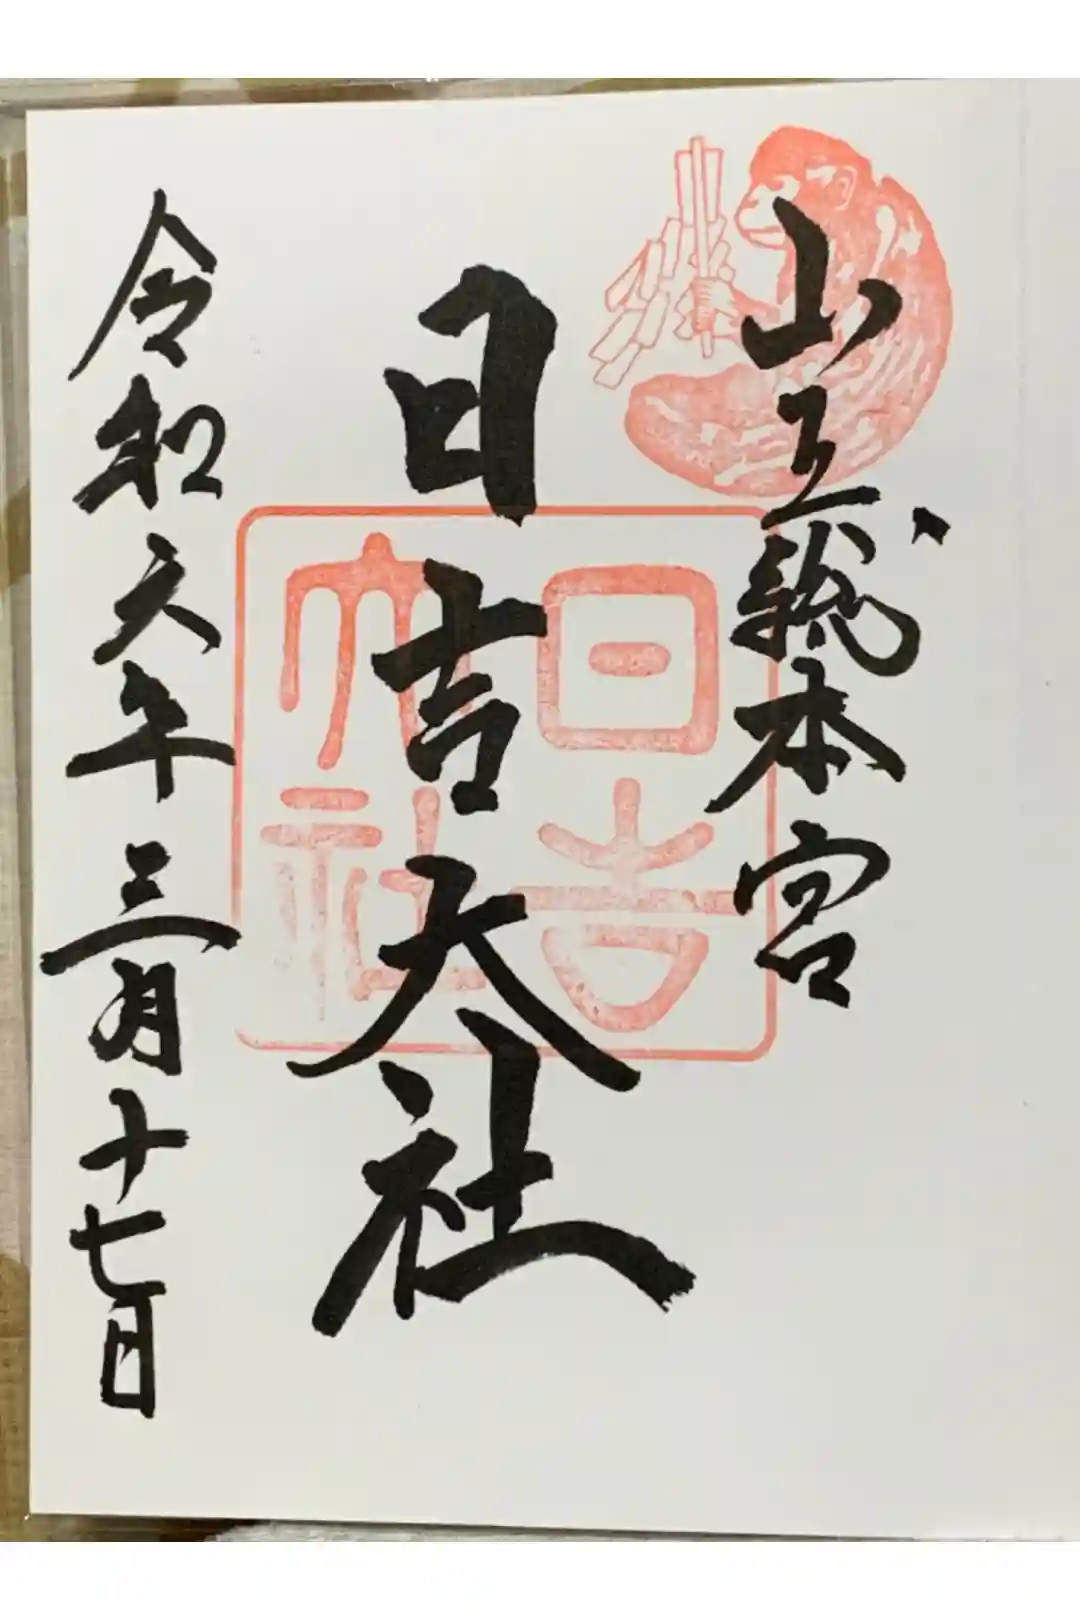 山王総本宮
日吉大社
日吉
大社
令和六年三月十七日